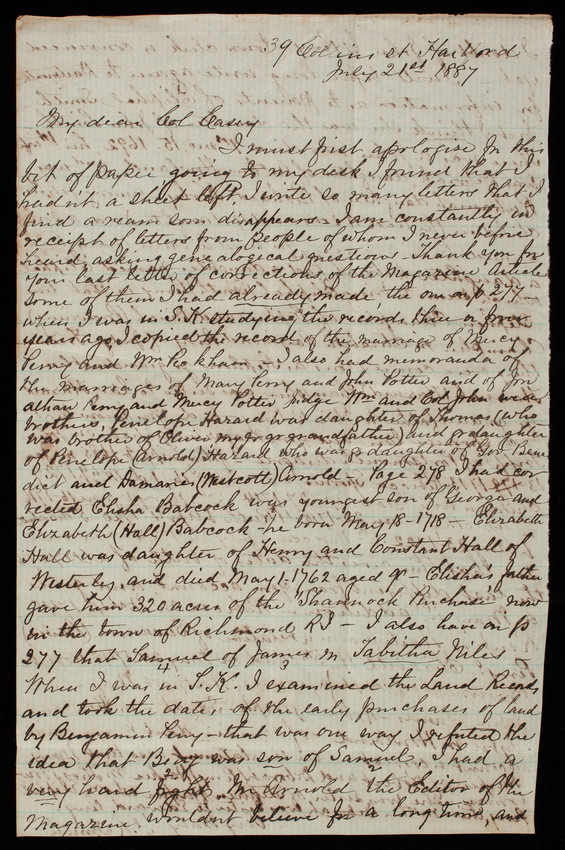 39 Collins st Hartford
July 21st 1887
My dear Col Casey
I must first apologise for this
bit of paper going to my desk I found that I
hadnt a sheet left, I write so many letters that I
find a ream soon disappears - I am constantly in
receipt of letters from people of whom I never before
heard asking genealogical questions - Thank you for
your last letter of corrections of the Magazine Article
some of them I had already made the one on p 277 -
when I was in S.K. studying the records three or four
years ago I copied the record of the marriage of Mercy
Perry and Wm Peckham - I also had memoranda of
the marriages of Mary Perry and John Potter and of Jon
athan Perry and Mercy Potter Judge Wm and Col John were
brothers, Penelope Hazard was daughter of Thomas (who
was brother of Oliver my gr gr grandfather) and grdaughter
of Penelope (Arnold) Hazard who was grdaughter of Gov Bene
dict and Damaries (Westcott) Arnold - Page 278 I had cor
rected Elisha Babcock was youngest son of George and
Elizabeth (Hall) Babcock - he born May 18 - 1718 - Elizabeth
Hall was daughter of Henry and Constant Hall of
Westerly, and died May 1. 1762 aged - Elisha's father
gave him 320 acres of the Shannock Purchase now
in the town of Richmond RI - I also have on p
277 that Samuel 4 of James 3 m Tabitha Niles
When I was in S.K. I examined the Land Records
and took the dates of the early purchases of land
by Benjamin Perry - that was one way I refuted the
idea that Benj 2 was son of Samuel 2 I had a
very hard fight. Mr Arnold the Editor of the
Magazine wouldnt believe for a long time, and